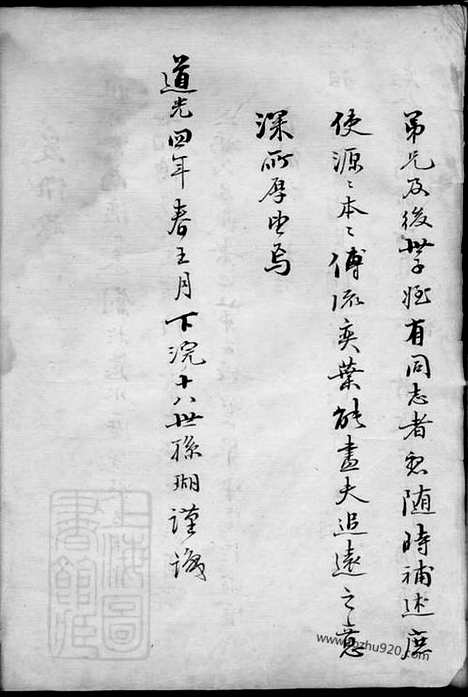 弟兄及後世子姪有同志者忽随時補述庶
使源〻本〻傳流奕葉能盡夫追遠之意
深所厚望焉
道光四年春王月下浣十八世孫瑚謹識
上海圖書館藏
www.pzhu920.com